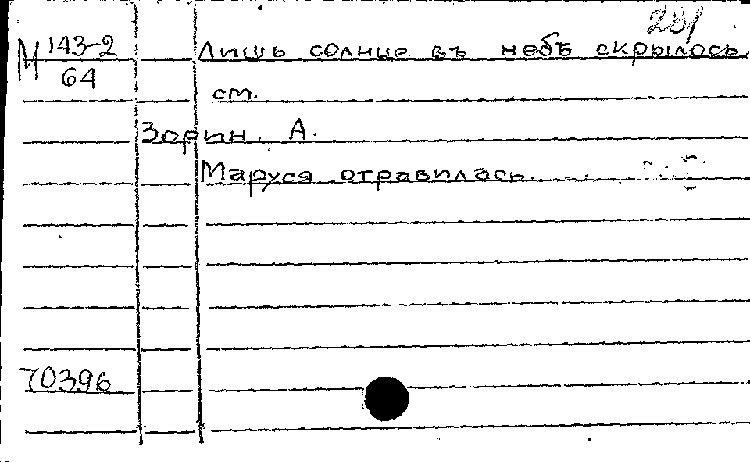 281
М 143-2
64
Лишь солнце въ небѣ скрылось.
см.
Зорин. А.
Маруся отравилась.
70396